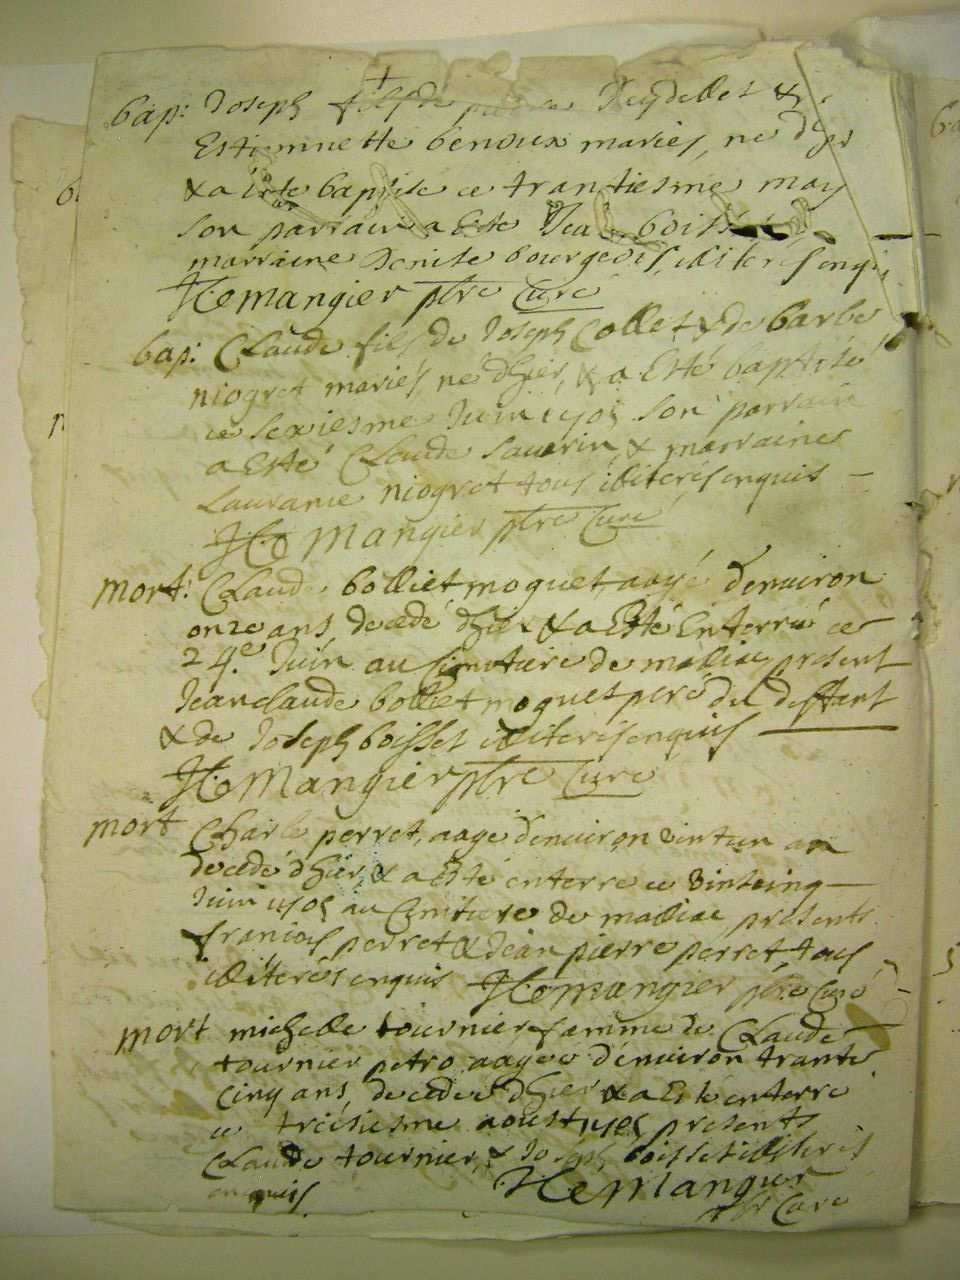 bap: Joseph fils de pierre Reydellet &
Estiennette benoux mariés, né d'hier
& a esté baptisé ce trantiesme may
son parrain a esté Jean boisset
marraine Denise bourgeois, illiterés enquis
H Mangier ptre Curé
bap: Claude fils de Joseph Collet & de barbe
niogret mariés, né d'hier, & a esté baptisé
ce sexiesme Juin 1705 son parrain
a esté Claude Savarin & marraine
Lauranse niogret tous illiterés enquis
H Mangier ptre Curé
mort: Claude bolliet moquet, aagé d'environ
onze ans, decedé d'hier & a esté enterré ce
24e Juin au Cimitiere de malliac present
Jean claude bolliet moquet pere du deffant
& de Joseph boisset illiterés enquis
H Mangier ptre Curé
mort Charle perret, aagé d'environ vint un an
decedé d'hier, & a esté enterré ce vintcinq
Juin 1705 au Cimitiere de malliac, presents
franiois perret & Jean pierre perret, tous
illiterés enquis H Mangier ptre Curé
mort michelle tournier famme de Claude
tournier petro aagée d'environ trante
cinq ans, decedée d'hier & a esté enterré
ce treisiesme aoust 1705 presents
Claude tournier, & Joseph boisset illiterés
enquis H Mangier
ptr Curé